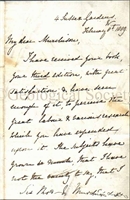 4 Sussex Gardens
February 8th 1859
My dear Murchison
I have received your book,
your third edition, with great
satisfaction, & have seen
enough of it, to perceive the
great labour & care
which you have expended
upon it. The subjects have
grown so much that I have
not the vanity to say that I
Sir Rod. I. Murchison